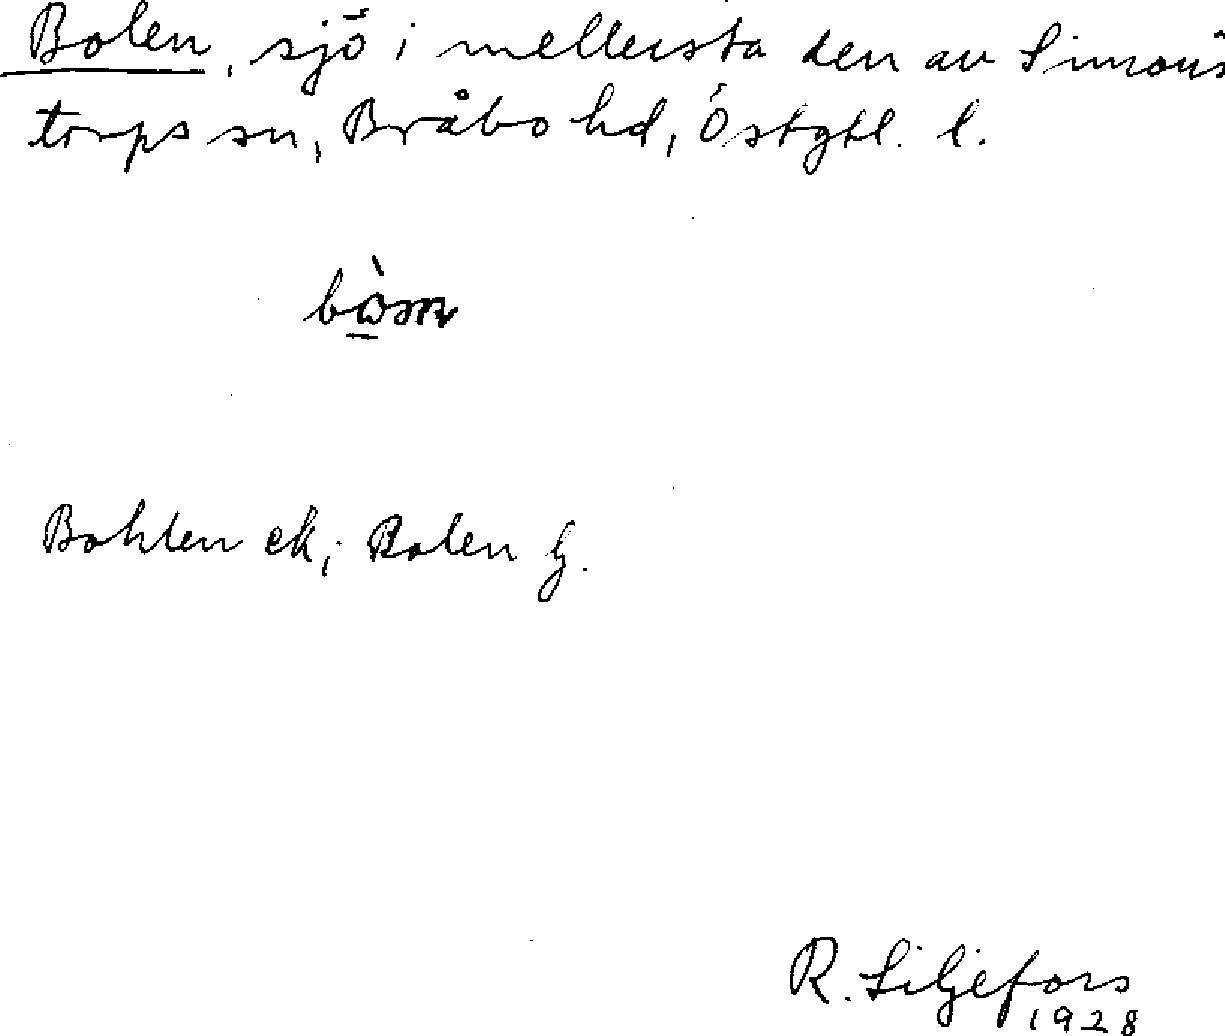 Bolen, sjö i mellersta den av Simons
torps sn, Bråbo hd, Östgtl. l.
Bohlen ek; Bolen G.
R. Liljefors
1928